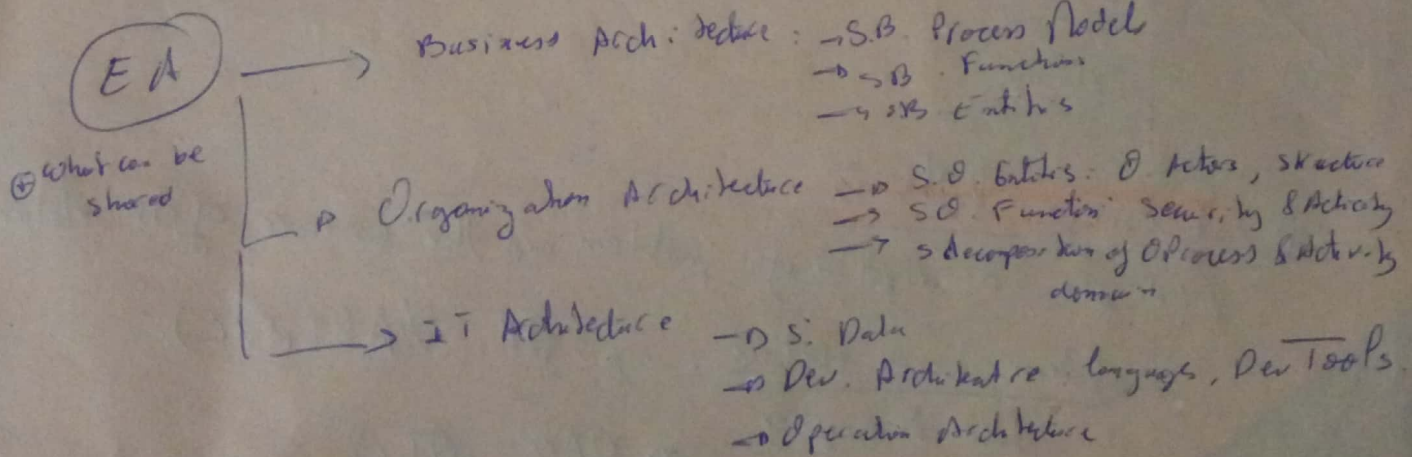 EA
Business Architecture : → S.B. Process Model
→ SB. Functions
→ SB Entities
⊕ What can be
shared
→ Organization Architecture → S.O. Entities: O. Actors, Structure
→ SO. Function Security & Activity
→ S decomposition of O Process & Activity
domain
→ IT Architecture → S. Data
→ Dev. Architecture languages, Dev Tools.
→ Operation Architecture